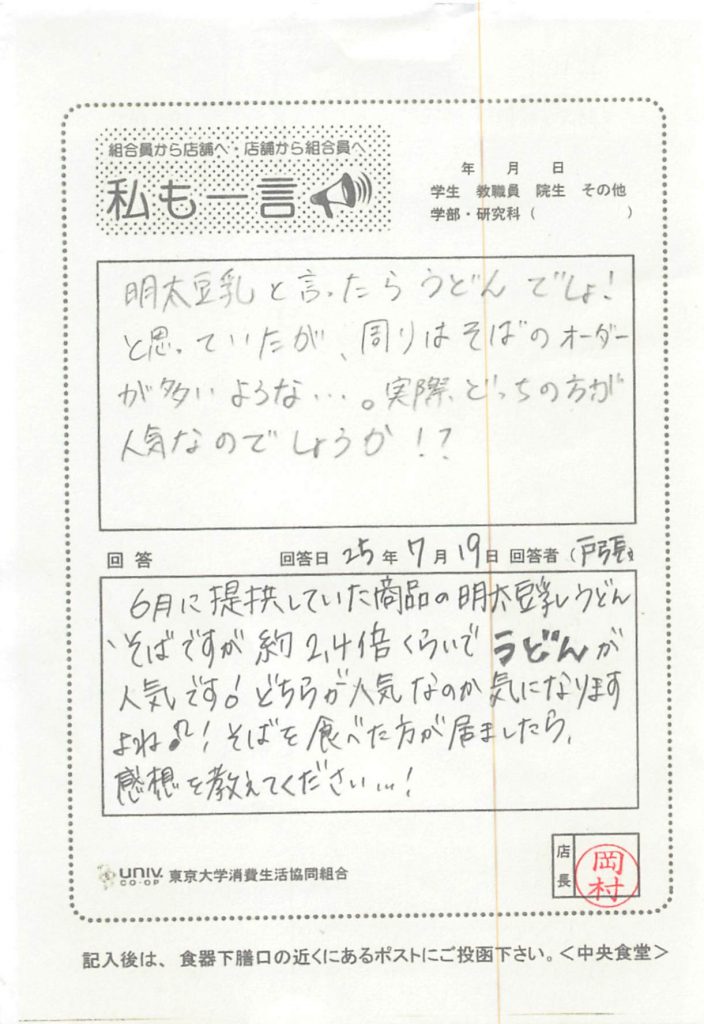 組合員から店舗へ・店舗から組合員へ
私も一言
年 月 日
学生 教職員 院生 その他
学部・研究科( )
明太豆乳と言ったらうどんでしょ!
と思っていたが、周りはそばのオーダー
が多いような…。実際どっちの方が
人気なのでしょうか!?
回答 回答日 25年7月19日 回答者(戸張)
6月に提供していた商品の明太豆乳うどん
、そばですが約2,4倍くらいでうどんが
人気です!どちらが人気なのか気になります
よね♪!そばを食べた方が居ましたら、
感想を教えてください…!
店長
岡村
UNIV.
CO-OP
東京大学消費生活協同組合
記入後は、食器下膳口の近くにあるポストにご投函下さい。<中央食堂>